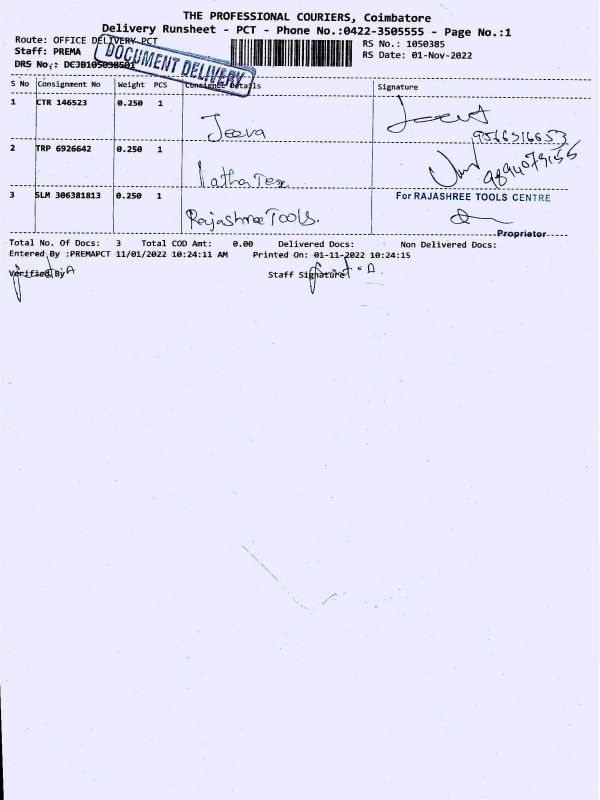 THE PROFESSIONAL COURIERS, Coimbatore
Delivery Runsheet - PCT - Phone No.:0422-3505555 - Page No.:1
Route: OFFICE DELIVERY PCT
RS No.: 1050385
Staff: PREMA
RS Date: 01-Nov-2022
DRS No.: DCJB105038501
DOCUMENT DELIVERY
S No Consignment No Weight PCS Consignee Details Signature
1 CTR 146523 0.250 1
Jeeva
9566316653
2 TRP 6926642 0.250 1
Latha Tex
9894079155
3 SLM 306381813 0.250 1
For RAJASHREE TOOLS CENTRE
Rajashree Tools.
Proprietor
Total No. Of Docs: 3 Total COD Amt: 0.00 Delivered Docs: Non Delivered Docs:
Entered By :PREMAPCT 11/01/2022 10:24:11 AM Printed On: 01-11-2022 10:24:15
Verified By Staff Signature